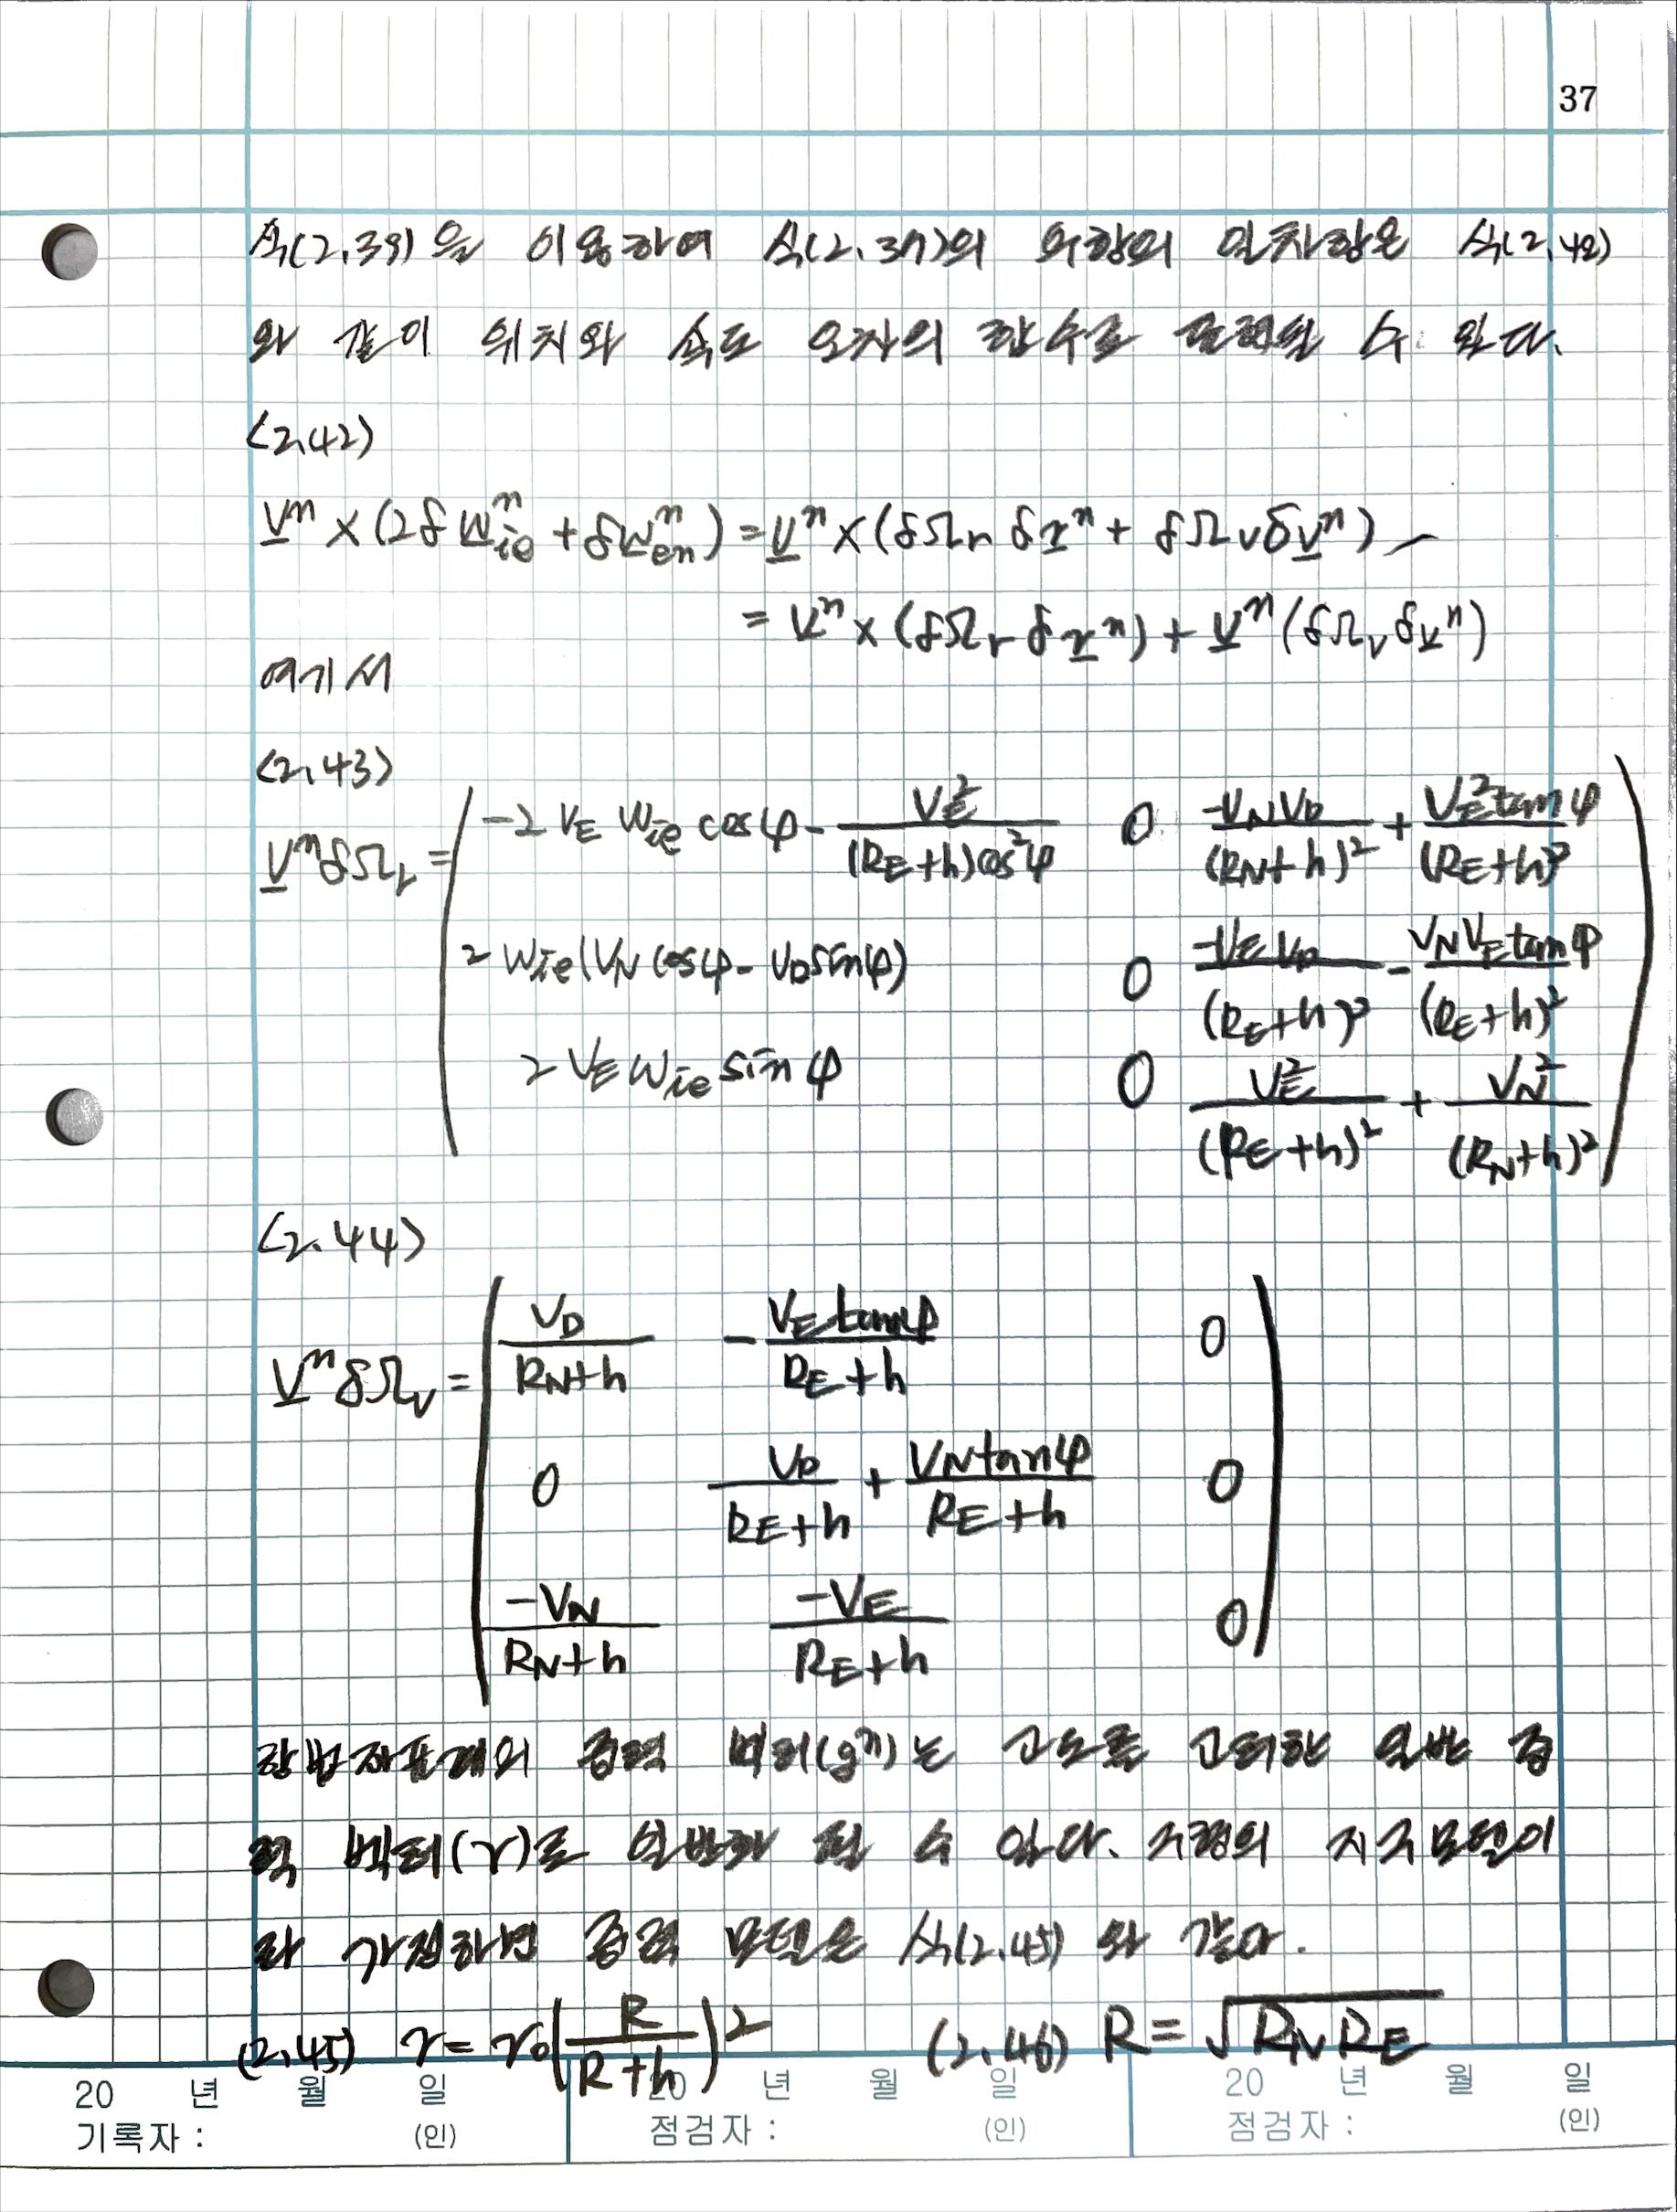 37
식(2.39)을 이용하여 식(2.37)의 외항의 일차항은 식(2.42)
와 같이 위치와 속도 오차의 함수로 표현될 수 있다.
(2.42)
V^n × (2δW_ie^n + δW_en^n) = V^n × (δΩ_r δr^n + δΩ_v δV^n)
= V^n × (δΩ_r δr^n) + V^n (δΩ_v δV^n)
여기서
(2.43)
V^n δΩ_r = ( -2 V_E W_ie cosφ - V_E^2/((R_E+h)cos^2φ)   0   -V_N V_D/(R_N+h)^2 + V_E^2 tanφ/(R_E+h)^2
2 W_ie(V_N cosφ - V_D sinφ)   0   -V_E V_D/(R_E+h)^2 - V_N V_E tanφ/(R_E+h)^2
2 V_E W_ie sinφ   0   V_E^2/(R_E+h)^2 + V_N^2/(R_N+h)^2 )
(2.44)
V^n δΩ_v = ( V_D/(R_N+h)   - V_E tanφ/(R_E+h)   0
0   V_D/(R_E+h) + V_N tanφ/(R_E+h)   0
-V_N/(R_N+h)   -V_E/(R_E+h)   0 )
항법좌표계의 중력 벡터(g^n)는 고도를 고려한 일반 중
력 벡터(γ)로 일반화 될 수 있다. 지구모델이
라 가정하면 중력 모델은 식(2.45)와 같다.
(2.45) γ = γ_0 (R/(R+h))^2   (2.46) R = √(R_N R_E)
20 년 월 일 20 년 월 일 20 년 월 일
기록자 : (인) 점검자 : (인) 점검자 : (인)